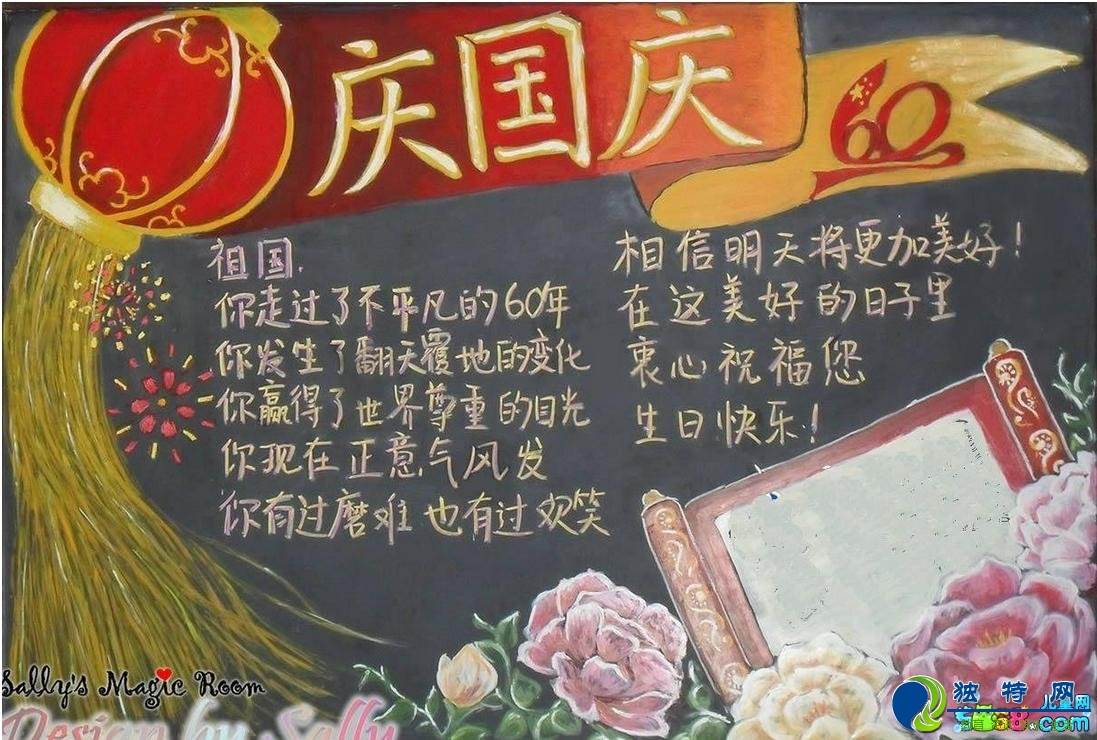 庆国庆
60
祖国.
你走过了不平凡的60年
你发生了翻天覆地的变化
你赢得了世界尊重的目光
你现在正意气风发
你有过磨难也有过欢笑
相信明天将更加美好！
在这美好的日子里
衷心祝福您
生日快乐！
Sally's Magic Room
Design by Sally
独特网
儿童网
.com